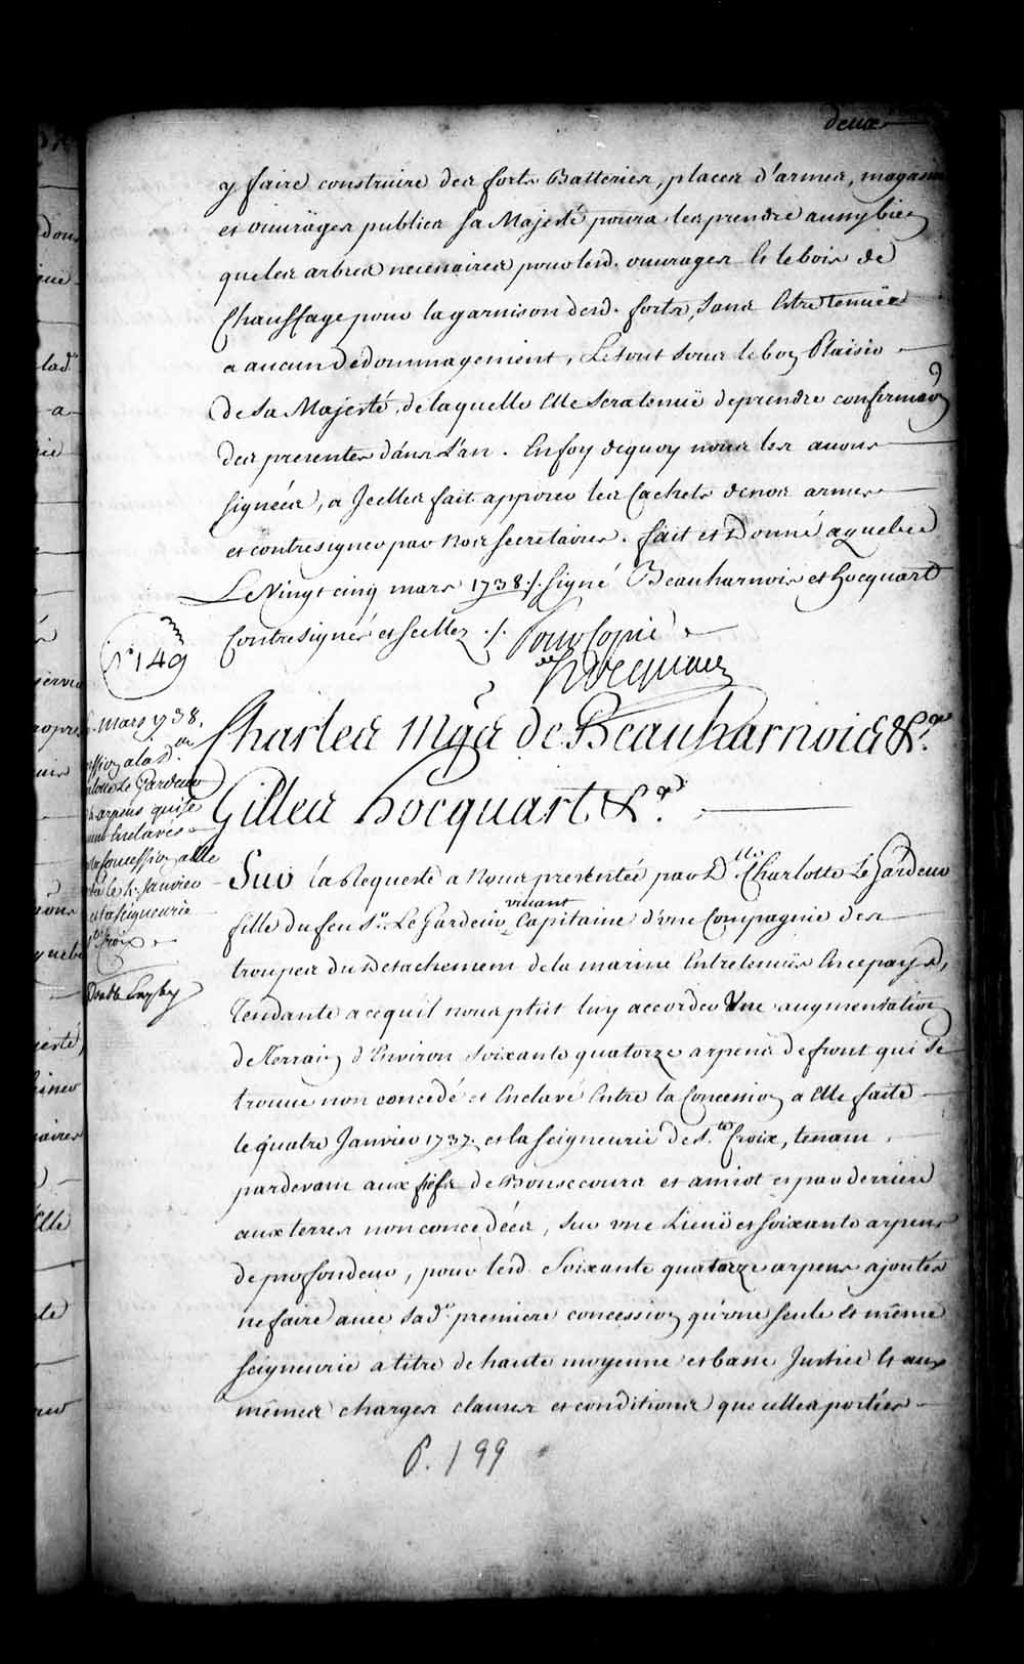 deux
y faire construire des forts Batteries, places d'armes, magasins
et ouurages publics sa Majesté poura les prendre aussy bien
que les arbres necessaires pour lesd. ouurages et le bois de
Chauffage pour la garnison desd. forts, sans Estre tenüe
a aucun dedommagement, Le tout sous le bon Plaisir
de sa Majesté, de laquelle Elle sera tenüe de prendre confirmaon
des presentes dans L'an. En foy de quoy nous les auons
signées, a Jcelles fait apposer les Cachets de nos armes
et contresigner par Nos secretaires. fait et Donné a quebec
Le Vingt cinq mars 1738 ./. signé Beauharnois et Hocquart
Contresignés et scellez ./. Pour Copie
Hocquart
N° 149
mars 1738.
ssion a la D.lle
Le Gardeur
arpens qui se
Enclavés
concession a elle
le 4. Janvier
et la seigneurie
Ste Croix
Double Employ
Charles Mgis de Beauharnois &c.a
Gilles Hocquart &c.a
Sur la Requeste a Nous presentée par D.lle Charlotte Le Gardeur
fille du feu Sr. Le Gardeur vivant Capitaine d'vne Compagnie des
troupes du Detachement de la marine Entretenües En ce pays,
Tendante a ce quil nous plût luy accorder Vne augmentation
de Terrain d'Environ soixante quatorze arpens de front qui se
trouue non concedé et Enclavé Entre la Concession a Elle faite
le quatre Janvier 1737. et la seigneurie de Ste. Croix, tenant
pardevant aux fiefs de Bonsecours et amiot et par derriere
aux terres non concedées, sur vne Lieüe et soixante arpens
de profondeur, pour lesd. soixante quatorze arpens ajoutés
ne faire auec sad.e premiere concession qu'vne seule et même
seigneurie a titre de haute moyenne et basse Justice et aux
mêmes charges clauses et conditions que celles portées
P. 199